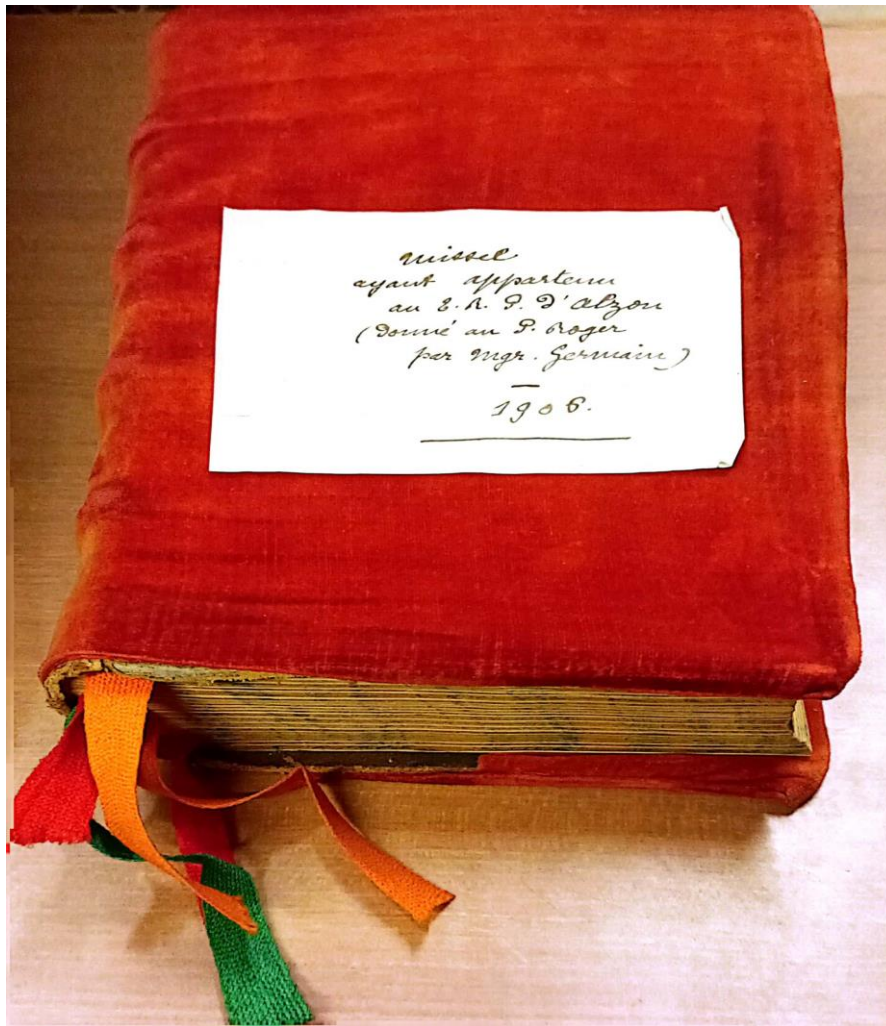 Missel
ayant appartenu
au T. R. P. d'Alzon
(donné au P. Roger
par Mgr. Germain)
1906.